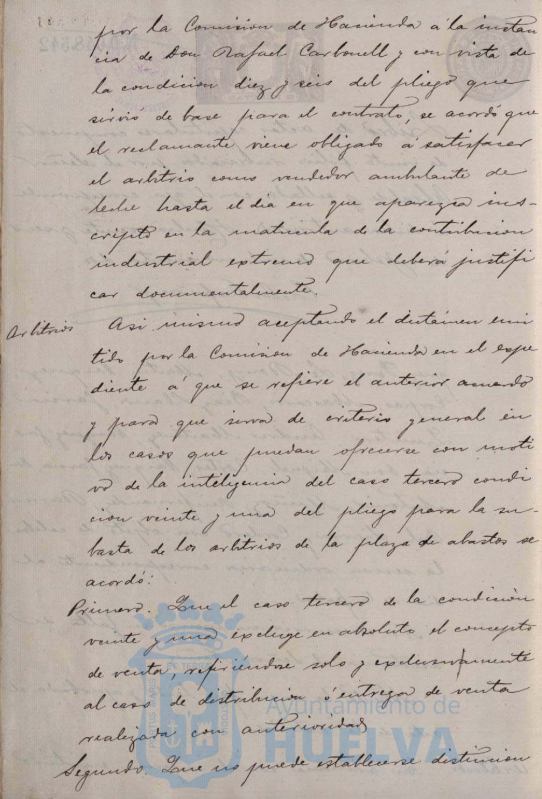 por la Comision de Hacienda a la instan
cia de Don Rafael Carbonell y con vista de
la condicion diez y seis del pliego que
sirvió de base para el contrato, se acordó que
el reclamante viene obligado a satisfacer
el arbitrio como vendedor ambulante de
leche hasta el dia en que aparezca ins-
cripto en la matricula de la contribucion
industrial extremo que deberá justifi
car documentalmente.
Arbitrios Asi mismo aceptando el dictámen emi
tido por la Comision de Hacienda en el espe
diente á que se refiere el anterior acuerdo
y para que sirva de criterio general en
los casos que puedan ofrecerse con moti
vo de la inteligencia del caso tercero condi
cion veinte y una del pliego para la su-
basta de los arbitrios de la plaza de abastos se
acordó:
Primero. Que el caso tercero de la condición
veinte y una excluye en absoluto el concepto
de venta, refiriéndose solo y exclusivamente
al caso de distribucion ó entrega de venta
realizada con anterioridad
Segundo. Que no puede establecerse distincion
Ayuntamiento de
HUELVA